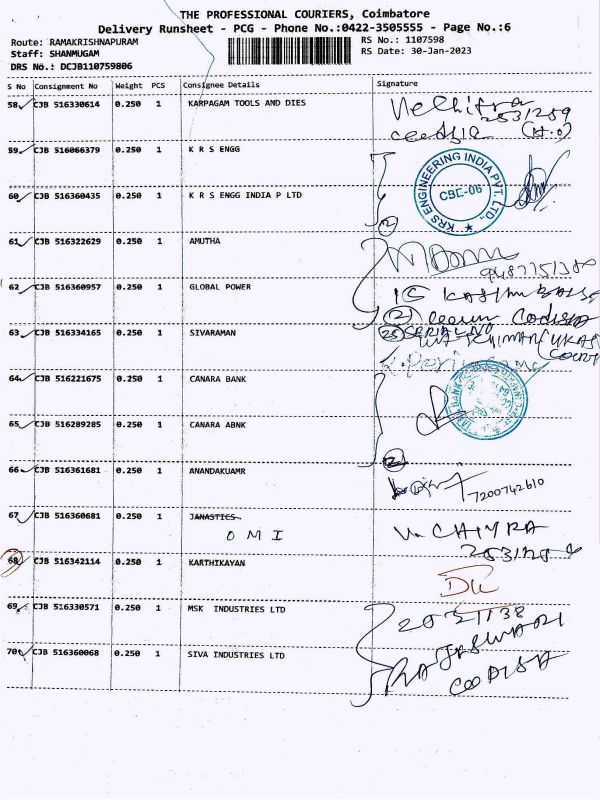 THE PROFESSIONAL COURIERS, Coimbatore
Delivery Runsheet - PCG - Phone No.:0422-3505555 - Page No.:6
Route: RAMAKRISHNAPURAM RS No.: 1107598
Staff: SHANMUGAM RS Date: 30-Jan-2023
DRS No.: DCJB110759806
S No Consignment No Weight PCS Consignee Details Signature
58 CJB 516330614 0.250 1 KARPAGAM TOOLS AND DIES
2531259
(H.O)
59 CJB 516066379 0.250 1 K R S ENGG
KRS ENGINEERING INDIA PVT. LTD. CBE-06
60 CJB 516360435 0.250 1 K R S ENGG INDIA P LTD
(2)
61 CJB 516322629 0.250 1 AMUTHA
9487751380
62 CJB 516360957 0.250 1 GLOBAL POWER
(2) CODISIA
63 CJB 516334165 0.250 1 SIVARAMAN
(25) SERIAL NO
64 CJB 516221675 0.250 1 CANARA BANK
65 CJB 516289285 0.250 1 CANARA ABNK
(2)
66 CJB 516361681 0.250 1 ANANDAKUAMR
7200742610
67 CJB 516360681 0.250 1 JANASTICS
O M I
68 CJB 516342114 0.250 1 KARTHIKAYAN
69 CJB 516330571 0.250 1 MSK INDUSTRIES LTD
70 CJB 516360068 0.250 1 SIVA INDUSTRIES LTD
RAJASWARI
CODISA